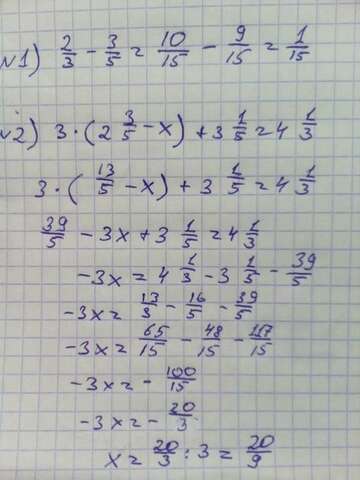 №1) 2/3 - 3/5 = 10/15 - 9/15 = 1/15
№2) 3·(2 3/5 - x) + 3 1/5 = 4 1/3
3·(13/5 - x) + 3 1/5 = 4 1/3
39/5 - 3x + 3 1/5 = 4 1/3
-3x = 4 1/3 - 3 1/5 - 39/5
-3x = 13/3 - 16/5 - 39/5
-3x = 65/15 - 48/15 - 117/15
-3x = - 100/15
-3x = - 20/3
x = 20/3 : 3 = 20/9